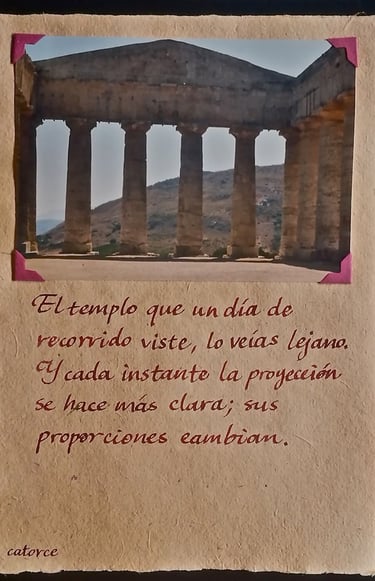 El templo que un día de
recorrido viste, lo veías lejano.
Y cada instante la proyección
se hace más clara; sus
proporciones cambian.
catorce